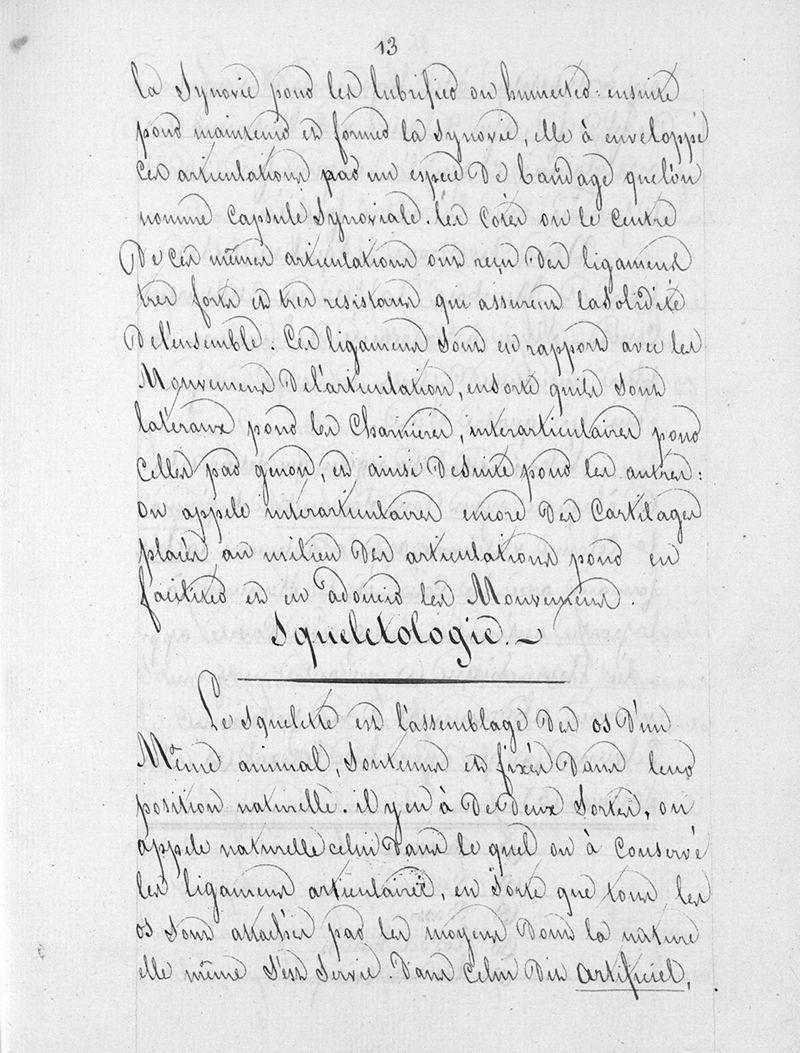 13
la Synovie pour les lubrifier ou humecter: ensuite
pour maintenir et former la Synovie, elle à enveloppé
Ces articulations par un espèce De bandage quelon
nomme Capsule Synoviale. les Cotés ou le Centre
De ces mêmes articulations ont reçu Des ligamens
tres forts et tres resistans qui assurent la Solidité
De l'ensemble. Ces ligamens Sont en rapport avec les
Mouvemens De l'articulation, en Sorte quils Sont
latéraux pour les Charnieres, interarticulaires pour
Celles par genou, et ainsi De Suite pour les autres:
on appele interarticulaires encore Des Cartilages
placés au milieu Des articulations pour en
faciliter et en adoucir les Mouvemens.
Squeletologie.
Le Squelette est l'assemblage Des os D'un
Même animal, Soutenus et fixés Dans leur
position naturelle. il y en à De deux Sortes, on
appele naturelle celui Dans le quel on à Conservé
les ligamens articulaires, en Sorte que tous les
os Sont attachés par les moyens Dont la nature
elle même S'est Servie. Dans Celui Dit artificiel,